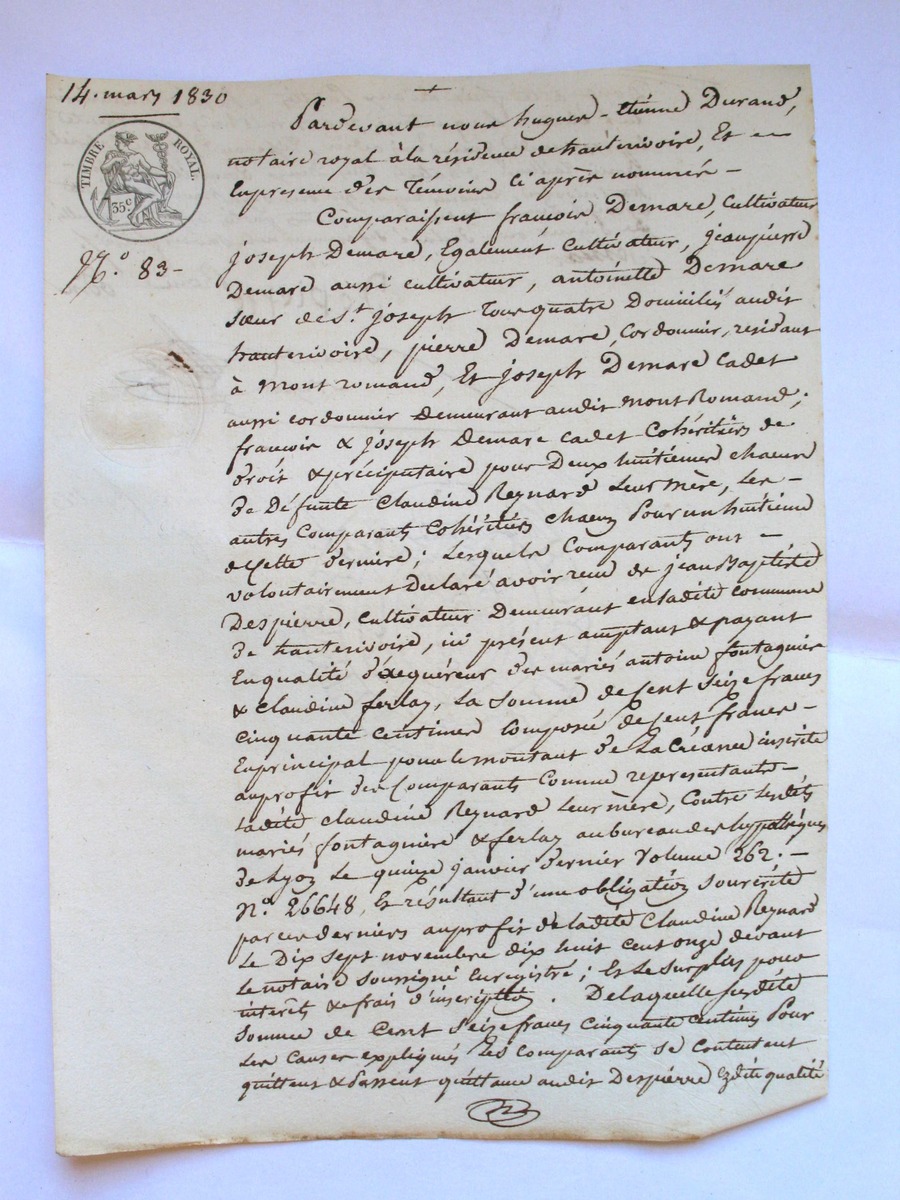 14. mars 1830
TIMBRE ROYAL.
35c
N.o 83-
Pardevant nous hugues-Etienne Durand,
notaire royal à la résidence de hauterivoire, Et en
Enpresence des Témoins ci après nommés -
Comparaissent francois Demare, cultivateur
joseph Demare, Egalement cultivateur, jeanpierre
Demare aussi cultivateur, antoinette Demare
sœur du s.t joseph Tous quatre Domiciliés audit
hauterivoire, pierre Demare, Cordonnier, residant
à Montromand, Et joseph Demare cadet
aussi cordonnier demeurant audit Mont Romand;
francois & joseph Demare cadet Cohéritiers de
droit & préciputaire pour Deux huitiemes chacun
de Défunte Claudine Reynard Leur mère, Les -
autres Comparants Cohéritiers chacun Pour un huitieme
de Cette derniere; Lesquels Comparants ont -
volontairement Déclaré avoir recu de jean Baptiste
Despierre, cultivateur Demeurant en ladite commune
de hauterivoire, ici présent acceptant & payant
En qualité d'acquéreur des mariés antoine fontagnier
& Claudine ferlay, La Somme de Cent Seize francs
cinquante centimes Composée de Cent francs -
En principal pour le montant de La Créance inscrite
au profit des Comparants Comme representants -
Ladite Claudine Reynard Leur mère, Contre Lesdits
mariés fontagniere & ferlay au bureau des hypothèques
de Lyon Le quinze janvier dernier Volume 262. -
N.o 26648, Et résultant d'une obligation souscrite
par ces derniers au profit de ladite Claudine Reynard
Le Dix sept novembre dix huit cent onze devant
Le notaire soussigné Enregistré; Et Le surplus pour
interêts & frais d'inscription. De laquelle susdite
Somme de Cent Seize francs Cinquante Centimes Pour
Les Causes expliqués Les comparants se contentent
quittent & Passent quittance audit Despierre qualité